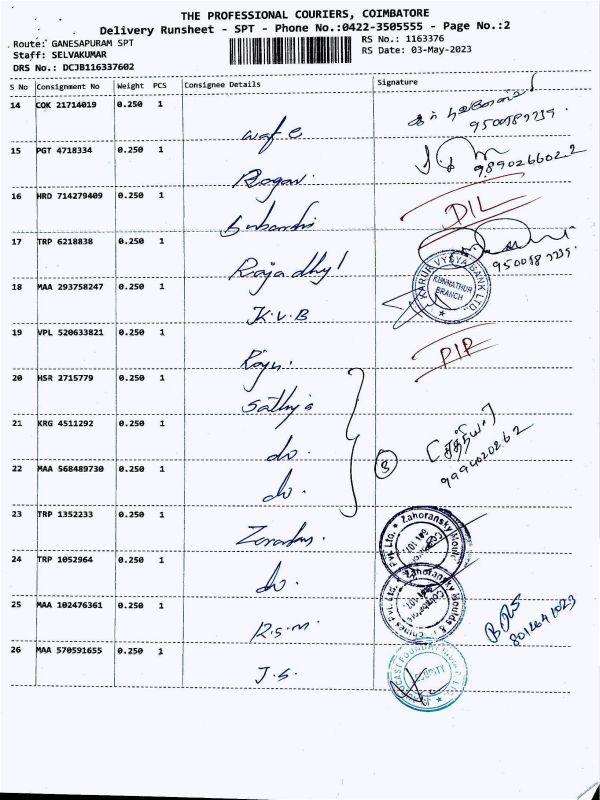 THE PROFESSIONAL COURIERS, COIMBATORE
Delivery Runsheet - SPT - Phone No.:0422-3505555 - Page No.:2
Route: GANESAPURAM SPT
RS No.: 1163376
Staff: SELVAKUMAR
RS Date: 03-May-2023
DRS No.: DCJB116337602
S No Consignment No Weight PCS Consignee Details Signature
14 COK 21714019 0.250 1
15 PGT 4718334 0.250 1
9890266022
16 HRD 714279409 0.250 1
DIL
17 TRP 6218838 0.250 1
18 MAA 293758247 0.250 1 K.V.B
KARUR VYSYA BANK LTD.
KUNNATHUR
BRANCH
19 VPL 520633821 0.250 1 Raju.
PIP
20 HSR 2715779 0.250 1 Sathya
21 KRG 4511292 0.250 1 do.
[சத்யா]
9994020262
22 MAA 568489730 0.250 1 do.
3
23 TRP 1352233 0.250 1
Zahoransky Moulds
Pvt. Ltd.
24 TRP 1052964 0.250 1 do.
Zahoransky Moulds &
25 MAA 102476361 0.250 1 R.S.M.
8012641023
26 MAA 570591655 0.250 1 J.S.
SECURITY